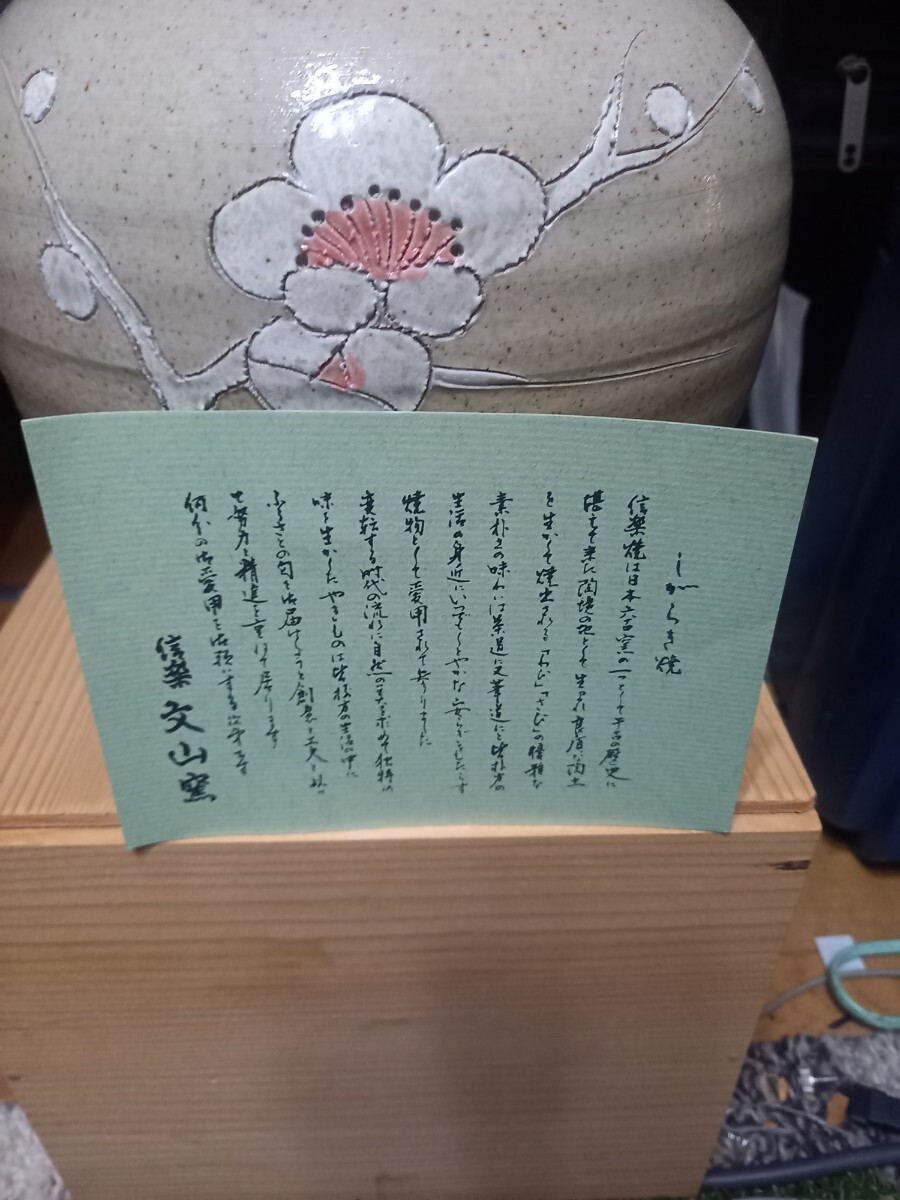 しがらき焼
信楽焼は日本六古窯の一つとして千古の歴史に
堪えて来た陶境の地として生れ良質な陶土
を生かして焼出される「わび」「さび」の優雅な
素朴さの味わいは茶道に又華道にと皆様方の
生活の身近にいつもしとやかな安らぎをもたらす
焼物として愛用されて参りました
変転する時代の流れに自然の美を求めて独特の
味を生かしたやきものは皆様方の生活の中に
ふるさとの匂を御届けしようと創意と工夫と
て努力と精進を重ねて居ります
何分の御愛用を御願いする次第です
信楽 文山窯